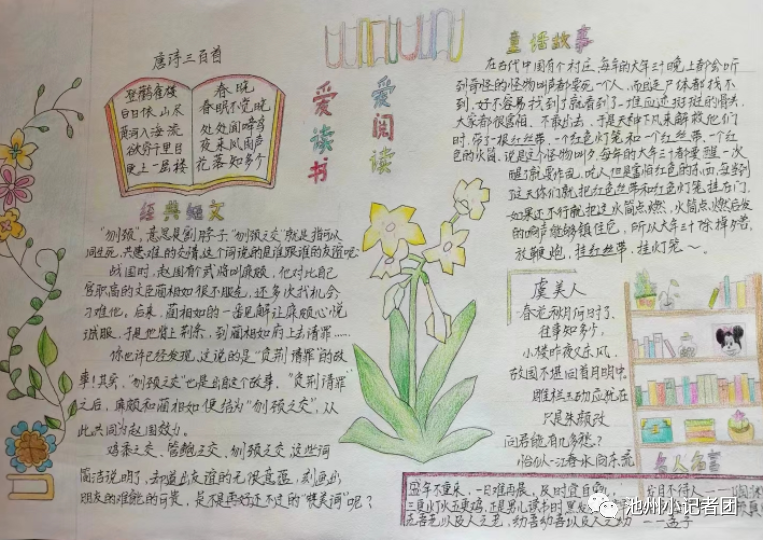 唐诗三百首
登鹳雀楼
白日依山尽
黄河入海流
欲穷千里目
更上一层楼
春晓
春眠不觉晓
处处闻啼鸟
夜来风雨声
花落知多少
爱读书
爱阅读
童话故事
在古代中国有个村庄,每年的大年三十晚上都会听
到奇怪的怪物叫声都要死一个人,而且连尸体都找不
到,好不容易找到了就看到了一堆应迹斑斑的骨头,
大家都很害怕,不敢出去,于是天神下凡来解救他们
时,带了一根红丝带、一个红色灯笼和一个红丝带、一个红
色的火筒,说是这个怪物叫夕,每年的大年三十都要醒一次
醒了就要作乱,吃人但是害怕红色的东西,每当到
了这天你们就把红色丝带和红色灯笼挂在门
如果还不行就把这火筒点燃,火筒点燃后发
的响声能够镇住它,所以大年三十除掉夕者
放鞭炮,挂红丝带、挂灯笼~。
经典短文
“刎颈”,意思是割脖子“刎颈之交”就是指可以
同生死,共患难的交情,这个词说的是谁跟谁的友谊呢
战国时,赵国有武将叫廉颇,他对比自己
官职高的文臣蔺相如很不服气,还多次找机会
刁难他,后来,蔺相如的一番见解让廉颇心悦
诚服,于是他背上荆条,到蔺相如府上去请罪……
你也许已经发现,这说的是“负荆请罪”的故
事!其实,“刎颈之交”也是出自这个故事,“负荆请罪”
之后,廉颇和蔺相如便结为“刎颈之交”,从
此共同为赵国效力。
鸡黍之交、管鲍之交、刎颈之交,这些词
简洁说明了,却道出友谊的无限意蕴,刻画出
朋友的难能的可贵,莫不是再好还不过的“赞美词”呢?
虞美人
春花秋月何日了,
往事知多少,
小楼昨夜又东风,
故国不堪回首月明中。
雕栏玉砌应犹在
只是朱颜改
问君能有几多愁?
恰似一江春水向东流
名人名言
盛年不重来,一日难再晨,及时宜自勉,岁月不待人
三更灯火五更鸡,正是男儿读书时,黑发
老吾老以及人之老,幼吾幼以及人之幼——孟子
池州小记者团